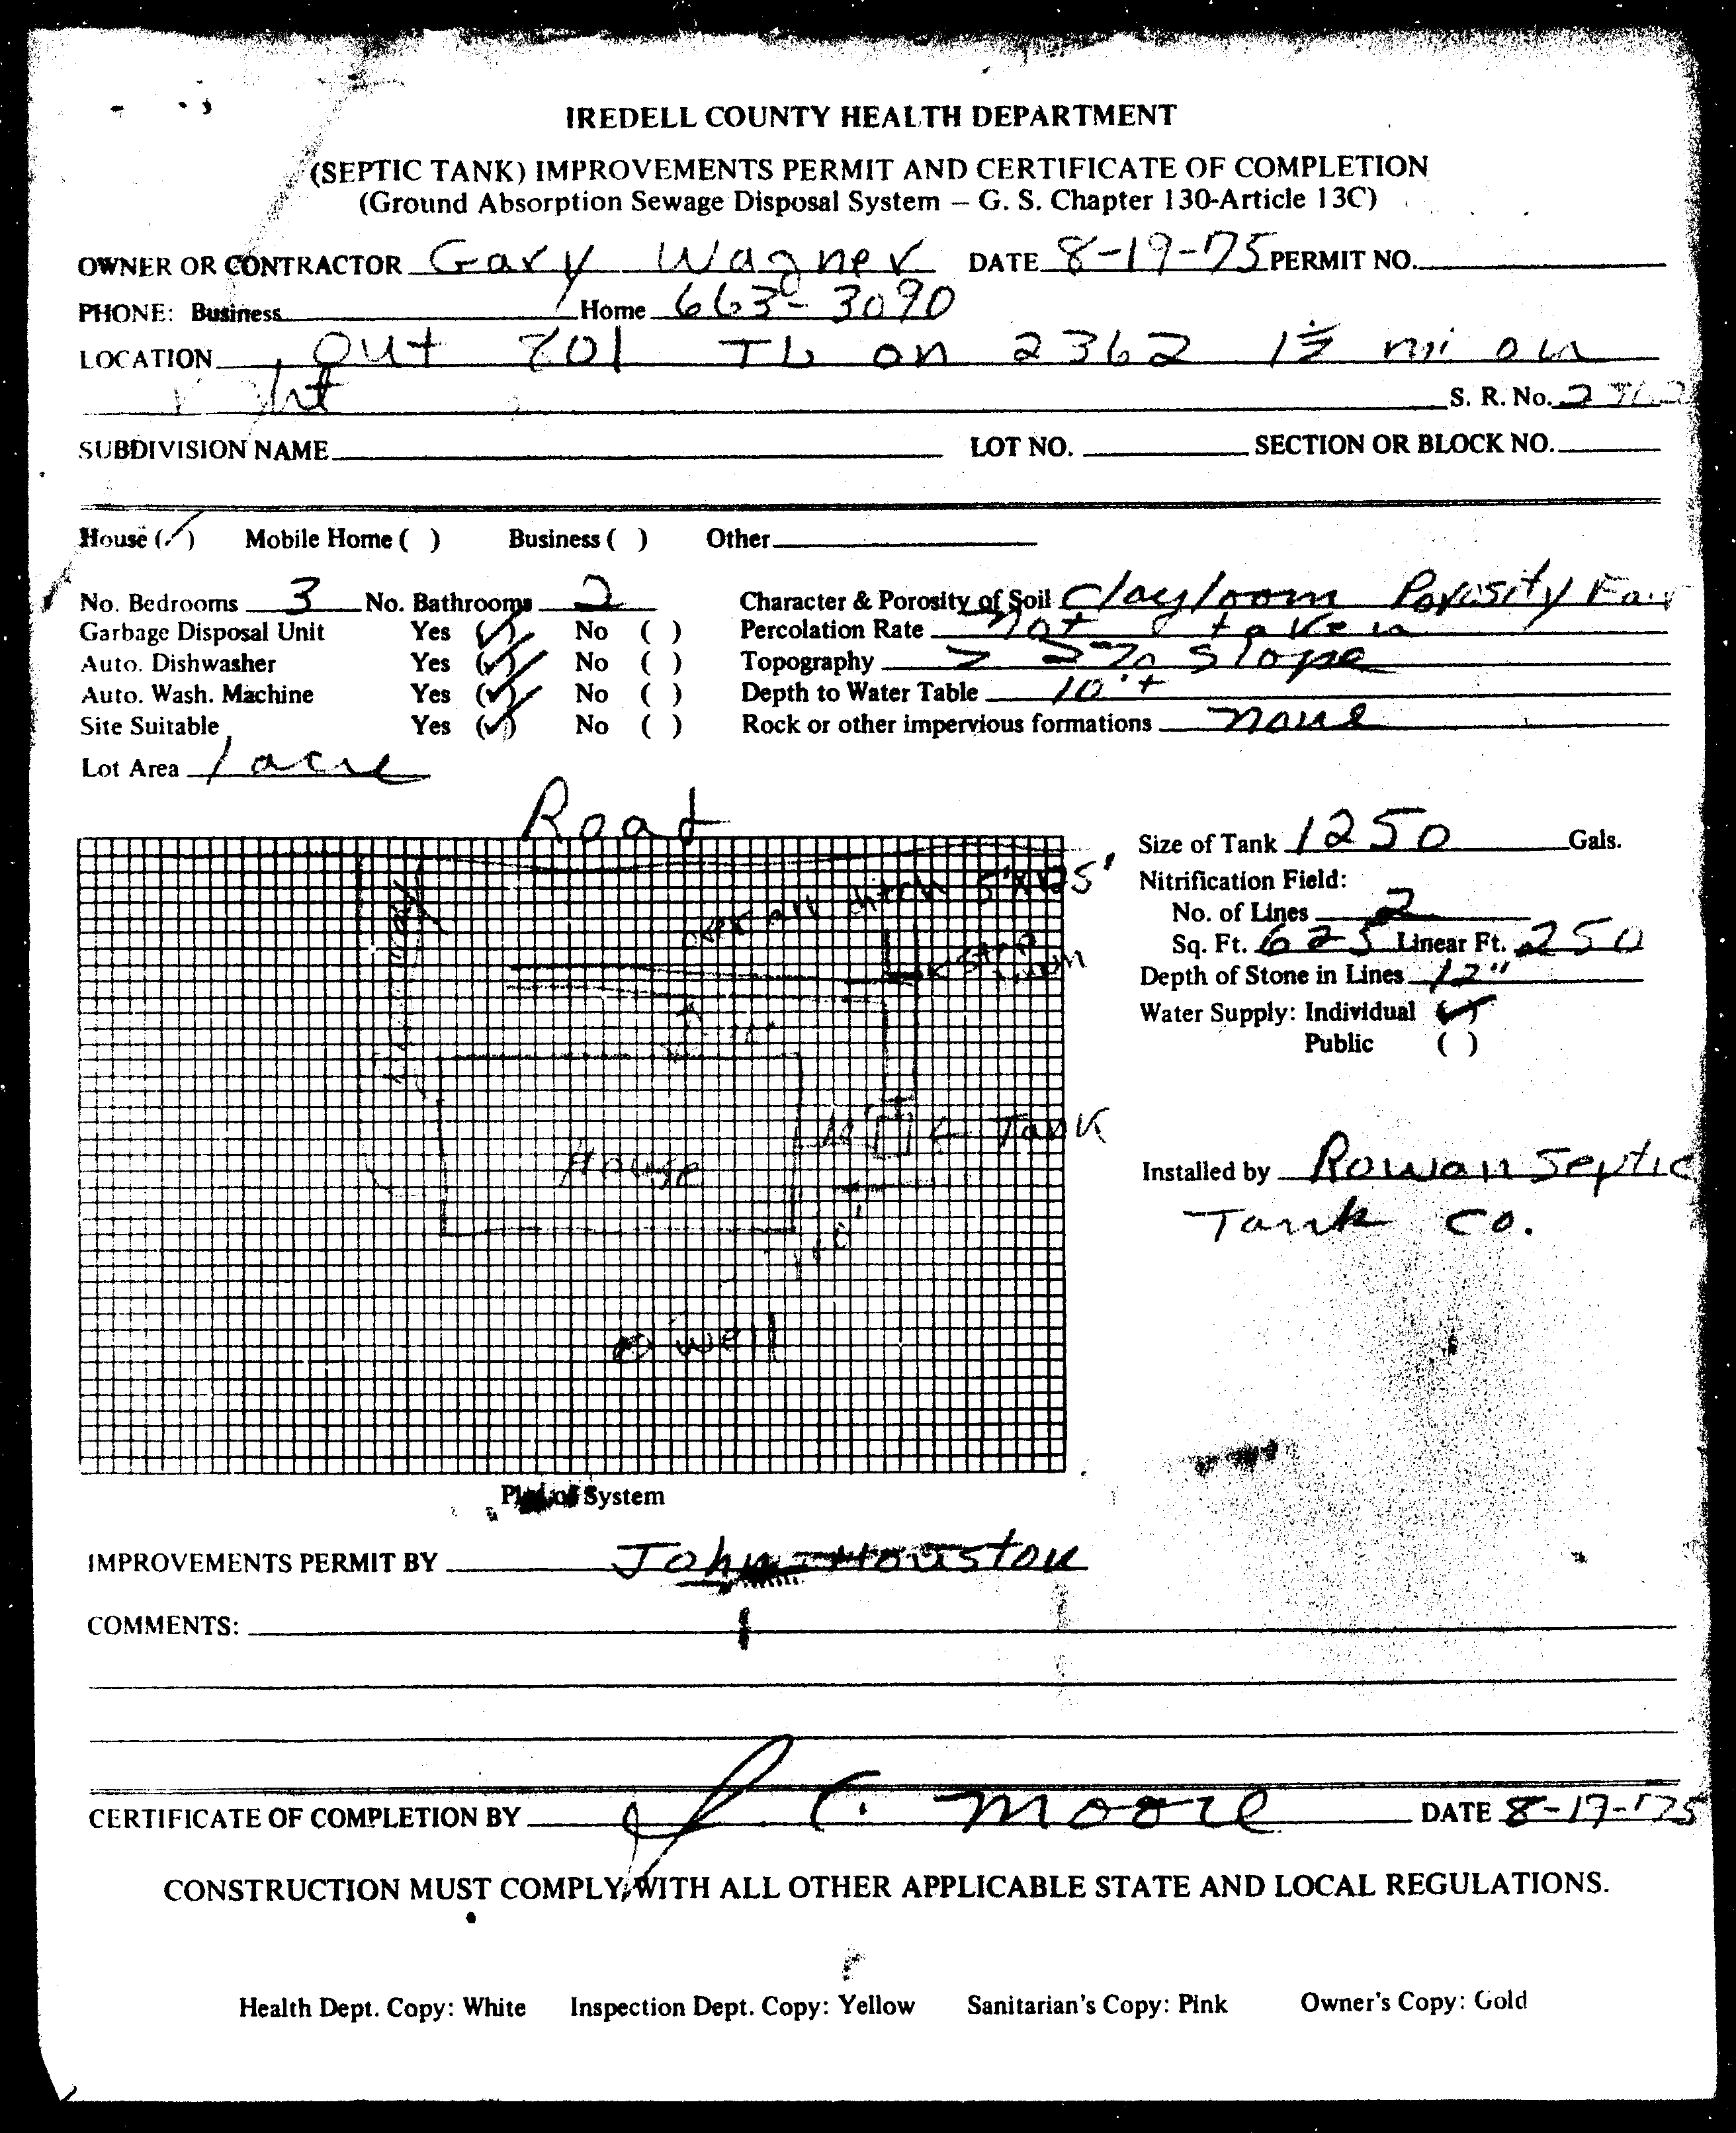 IREDELL COUNTY HEALTH DEPARTMENT
(SEPTIC TANK) IMPROVEMENTS PERMIT AND CERTIFICATE OF COMPLETION
(Ground Absorption Sewage Disposal System – G. S. Chapter 130-Article 13C)
OWNER OR CONTRACTOR Gary Wagner DATE 8-19-75 PERMIT NO.
PHONE: Business Home 663-3090
LOCATION out 801 TL on 2362 1½ mi on
right S. R. No. 2362
SUBDIVISION NAME LOT NO. SECTION OR BLOCK NO.
House (✓) Mobile Home ( ) Business ( ) Other
No. Bedrooms 3 No. Bathrooms 2 Character & Porosity of Soil Clayloom Porosity Fair
Garbage Disposal Unit Yes (✓) No ( ) Percolation Rate not taken
Auto. Dishwasher Yes (✓) No ( ) Topography > 2% slope
Auto. Wash. Machine Yes (✓) No ( ) Depth to Water Table 10'+
Site Suitable Yes (✓) No ( ) Rock or other impervious formations none
Lot Area 1 acre
Road
over all ditch 5'x125'
Step
Down
House
10'
← Tank
well
Size of Tank 1250 Gals.
Nitrification Field:
No. of Lines 2
Sq. Ft. 625 Linear Ft. 250
Depth of Stone in Lines 12"
Water Supply: Individual (✓)
Public ( )
Installed by Rowan Septic
Tank Co.
Plan of System
IMPROVEMENTS PERMIT BY John Houston
COMMENTS:
CERTIFICATE OF COMPLETION BY J. C. Moore DATE 8-19-75
CONSTRUCTION MUST COMPLY WITH ALL OTHER APPLICABLE STATE AND LOCAL REGULATIONS.
Health Dept. Copy: White Inspection Dept. Copy: Yellow Sanitarian's Copy: Pink Owner's Copy: Gold